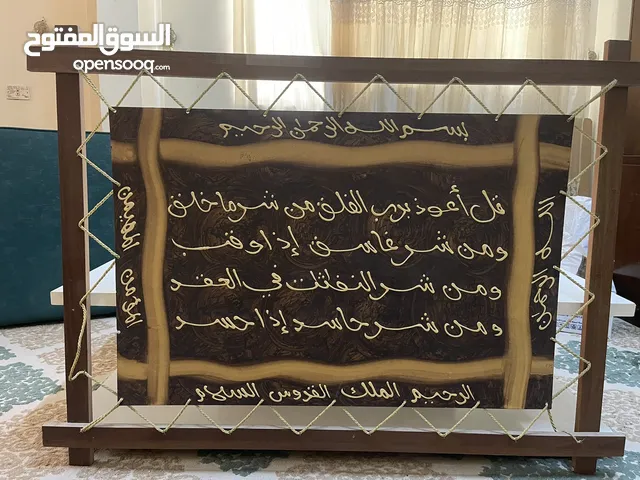 السوق المفتوح
opensooq.com
بسم الله الرحمن الرحيم
قل أعوذ برب الفلق من شر ما خلق
ومن شر غاسق إذا وقب
ومن شر النفاثات في العقد
ومن شر حاسد إذا حسد
الرحيم الملك القدوس السلام
المؤمن المهيمن